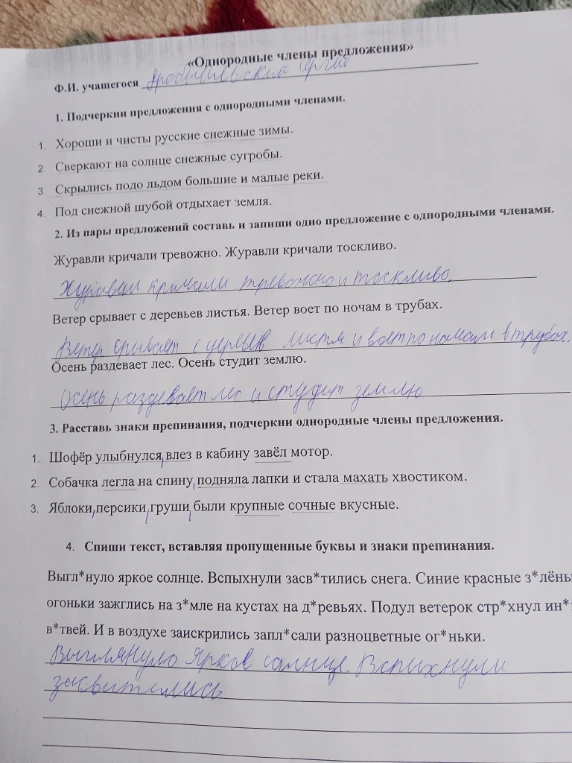 «Однородные члены предложения»
Ф.И. учащегося
1. Подчеркни предложения с однородными членами.
1. Хороши и чисты русские снежные зимы.
2. Сверкают на солнце снежные сугробы.
3. Скрылись подо льдом большие и малые реки.
4. Под снежной шубой отдыхает земля.
2. Из пары предложений составь и запиши одно предложение с однородными членами.
Журавли кричали тревожно. Журавли кричали тоскливо.
Журавли кричали тревожно и тоскливо.
Ветер срывает с деревьев листья. Ветер воет по ночам в трубах.
Ветер срывает с деревьев листья и воет по ночам в трубах.
Осень раздевает лес. Осень студит землю.
Осень раздевает лес и студит землю
3. Расставь знаки препинания, подчеркни однородные члены предложения.
1. Шофёр улыбнулся, влез в кабину завёл мотор.
2. Собачка легла на спину, подняла лапки и стала махать хвостиком.
3. Яблоки, персики, груши, были крупные сочные вкусные.
4. Спиши текст, вставляя пропущенные буквы и знаки препинания.
Выгл*нуло яркое солнце. Вспыхнули засв*тились снега. Синие красные з*лёны
огоньки зажглись на з*мле на кустах на д*ревьях. Подул ветерок стр*хнул ин*
в*твей. И в воздухе заискрились запл*сали разноцветные ог*ньки.
Выглянуло яркое солнце. Вспыхнули
засвителись